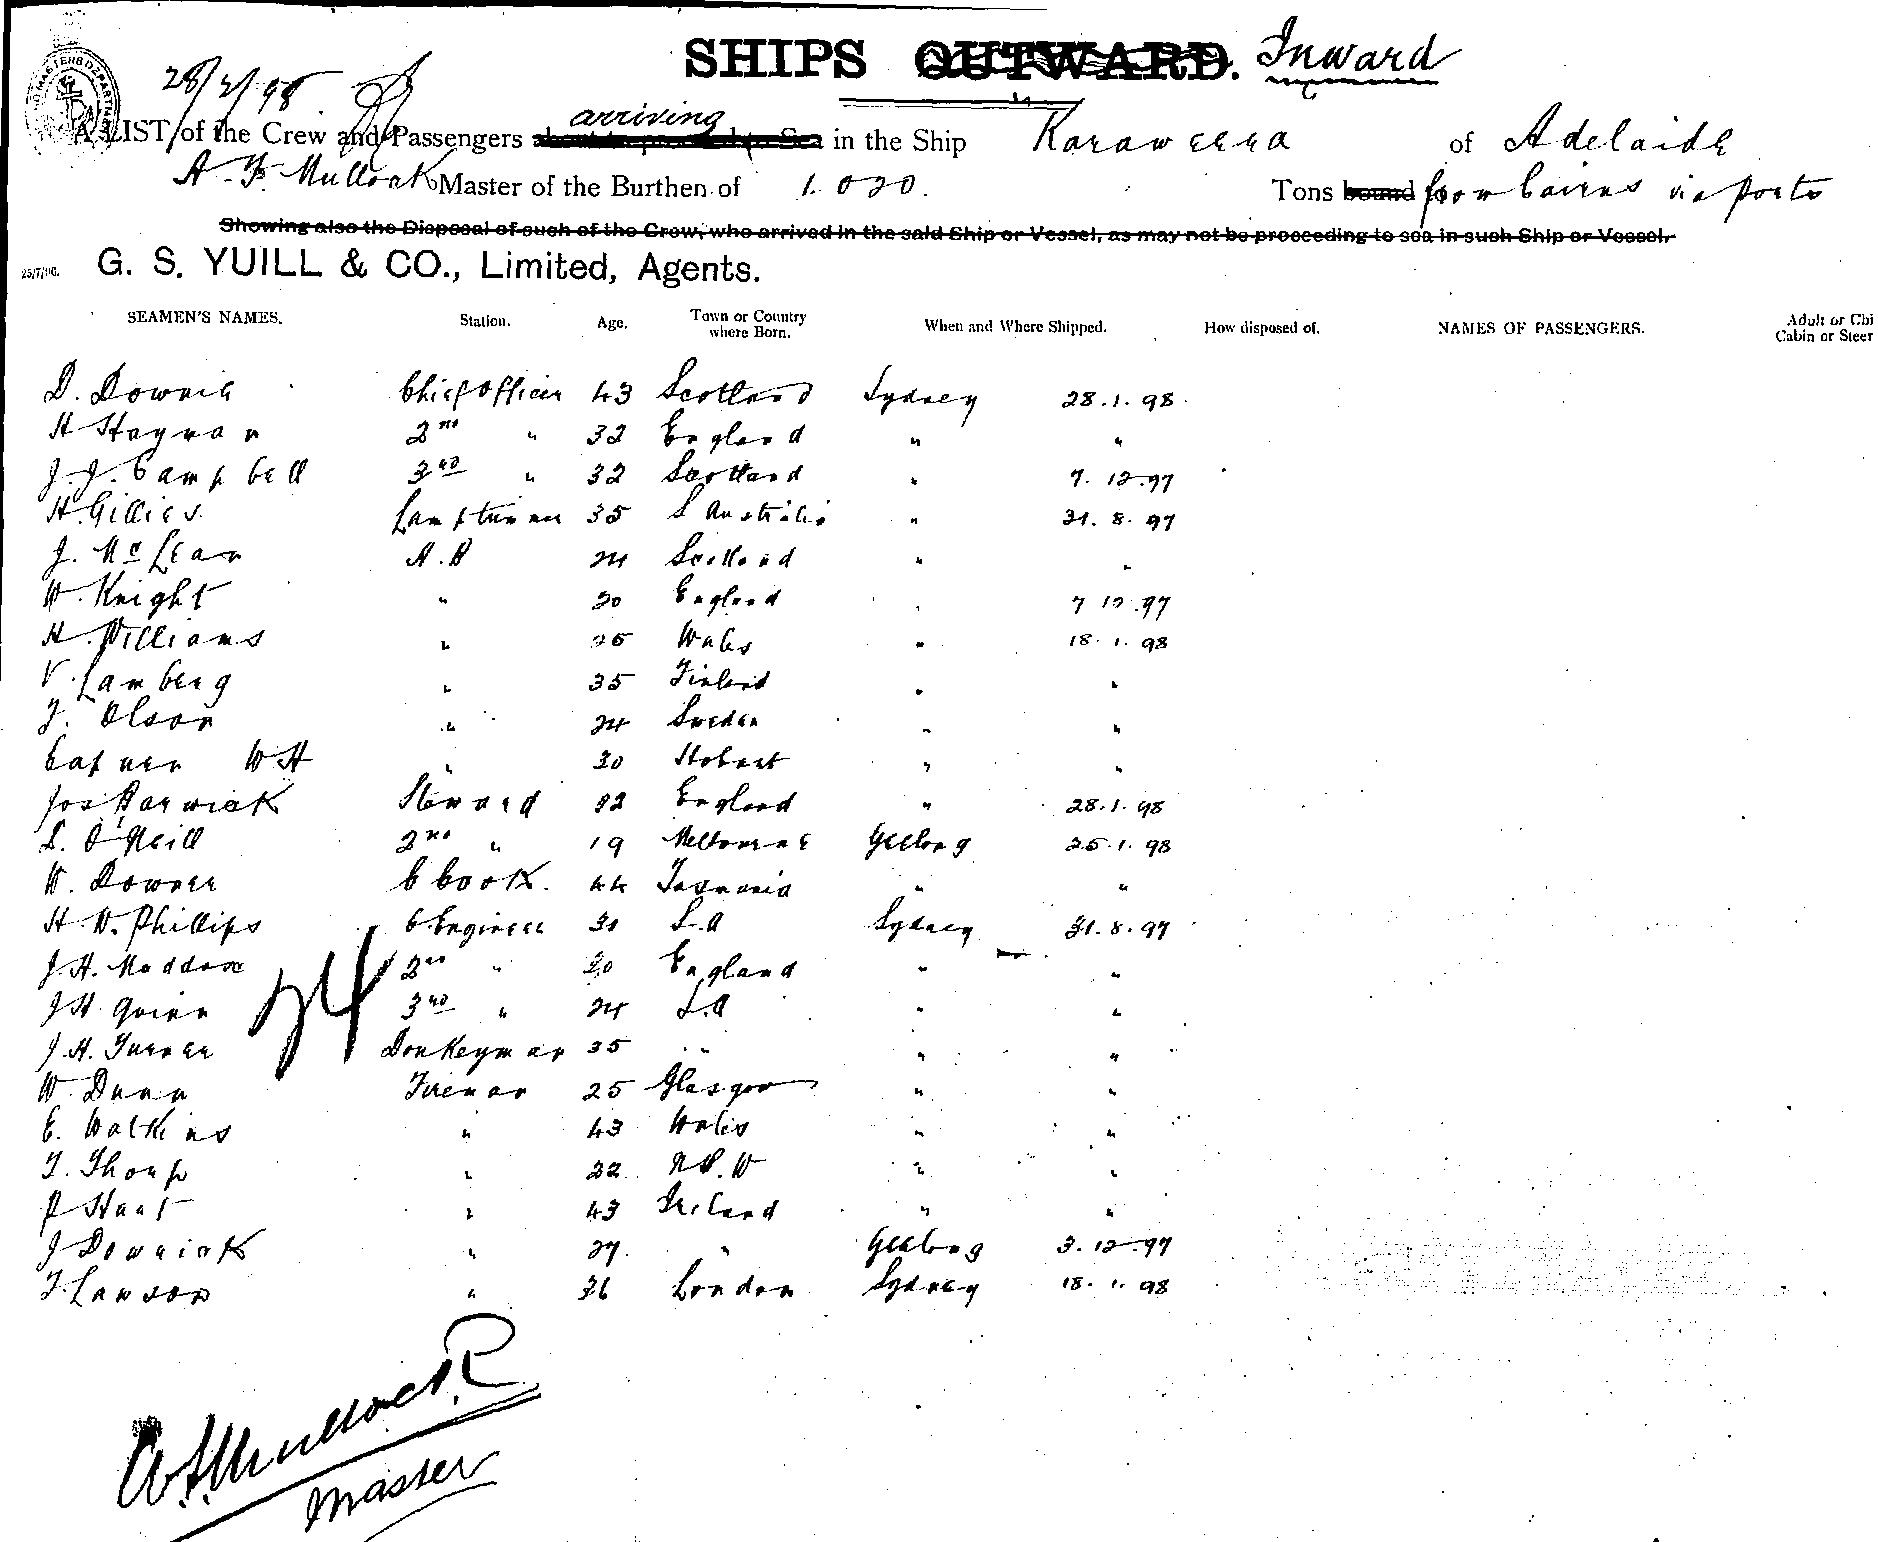 SHIPS OUTWARD. Inward
28/2/98
arriving
A LIST of the Crew and Passengers about to proceed to Sea in the Ship Karaweera of Adelaide
A. F. Mullock Master of the Burthen of 1.020. Tons bound to from Cairns via ports
Showing also the Disposal of such of the Crew, who arrived in the said Ship or Vessel, as may not be proceeding to sea in such Ship or Vessel.
G. S. YUILL & CO., Limited, Agents.
SEAMEN'S NAMES. Station. Age. Town or Country where Born. When and Where Shipped. How disposed of. NAMES OF PASSENGERS. Adult or Chi
Cabin or Steer
D. Downie Chief Officer 43 Scotland Sydney 28.1.98.
H Hayman 2nd " 32 England " "
J. J. Campbell 3rd " 32 Scotland " 7.12.97
H. Gillies Lamptrimmer 35 S Australia " 31.8.97
J. McLean A.B 24 Scotland " "
W. Knight " 20 England " 7 12.97
H. Williams " Wales " 18.1.98
V. Lamberg " 35 Finland " "
J. Olson " 24 Sweden " "
W H " 30 Hobart " "
Jos Barwick Steward England " 28.1.98
L. O'Neill 2nd " 19 Melbourne Geelong 25.1.98
W. Downer C Cook. 44 Tasmania " "
H W. Phillips C Engineer 31 S.A Sydney 31.8.97
J. H. Maddox 2nd " 30 England " "
J H Quinn 3rd " 24 S.A " "
24
J. H. Turner Donkeyman 35 " " "
W Dunn Fireman 25 Glasgow " "
E. Watkins " 43 Wales " "
T. Thorp " 32 N.S.W " "
P Hart " 43 Ireland " "
J Downick " 27. " Geelong 3.12.97
T. Lawson " 36 London Sydney 18.1.98
A. F. Mullock
Master